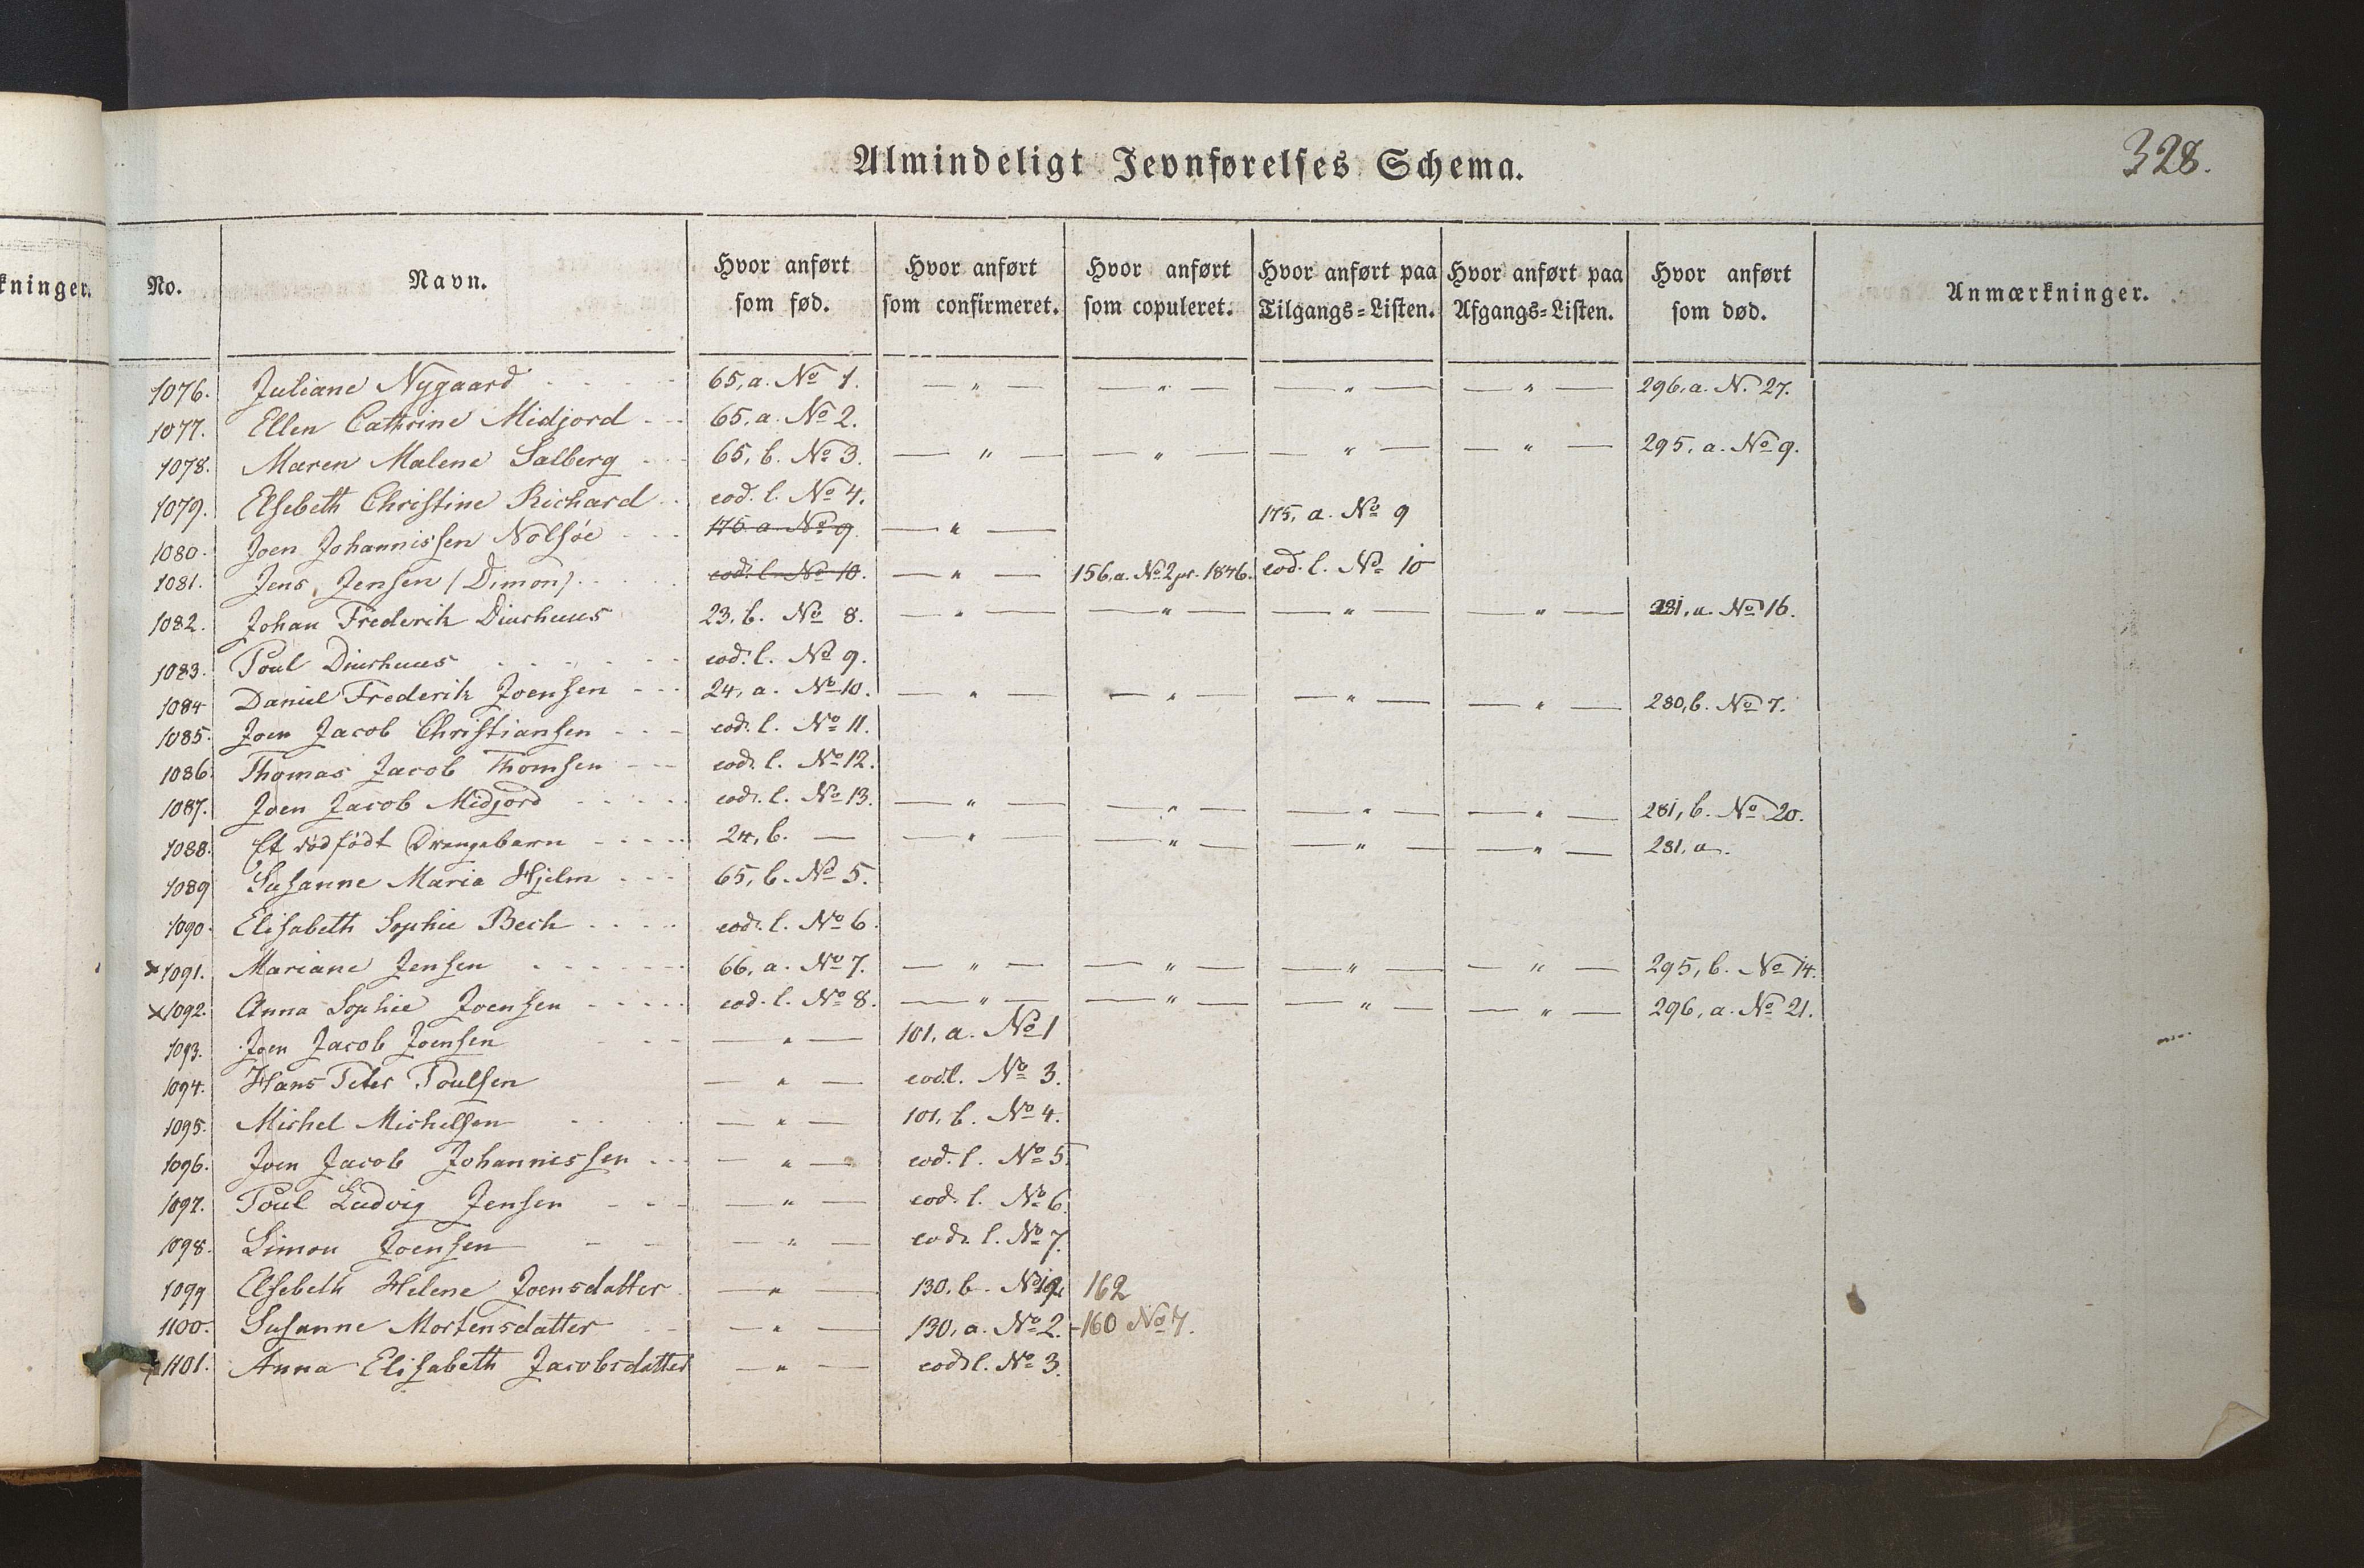 Almindeligt Jevnførelses Schema.
328.
kninger.
No. Navn. Hvor anført som fød. Hvor anført som confirmeret. Hvor anført som copuleret. Hvor anført paa Tilgangs=Listen. Hvor anført paa Afgangs=Listen. Hvor anført som død. Anmærkninger.
1076. Juliane Nygaard 65, a. No 1. — " — — " — — " — — " — 296, a. N. 27.
1077. Ellen Cathrine Midjord 65, a. No 2.
1078. Maren Malene Salberg 65, b. No 3. — " — — " — — " — — " — 295, a. No 9.
1079. Elsebeth Christine Richard eod. l. No 4.
1080. Joen Johannissen Nolsöe 175 a No 9 — " — 175, a. No 9
1081. Jens Jensen (Dimon) eod. l. No 10. — " — 156, a. No 2 pr. 1846. eod. l. No 10
1082. Johan Frederik Diurhuus 23, b. No 8. — " — — " — — " — — " — 281, a. No 16.
1083. Poul Diurhuus eod. l. No 9.
1084 Daniel Frederik Joensen 24, a. No 10. — " — — " — — " — — " — 280, b. No 7.
1085. Joen Jacob Christiansen eod. l. No 11.
1086. Thomas Jacob Thomsen eod. l. No 12.
1087. Joen Jacob Midjord eod. l. No 13. — " — — " — — " — — " — 281, b. No 20.
1088. Et dödfödt Drengebarn 24, b. — — " — — " — — " — — " — 281, a.
1089 Susanne Maria Hjelm 65, b. No 5.
1090. Elisabeth Sophie Bech eod. l. No 6.
x 1091. Mariane Jensen 66, a. No 7. — " — — " — — " — — " — 295, b. No 14.
x 1092. Anna Sophie Joensen eod. l. No 8. — " — — " — — " — — " — 296, a. No 21.
1093. Joen Jacob Joensen — " — 101, a. No 1
1094. Hans Peter Poulsen — " — eod. l. No 3.
1095. Michel Michelsen — " — 101, b. No 4.
1096. Joen Jacob Johannissen — " — eod. l. No 5.
1097. Poul Ludvig Jensen — " — eod. l. No 6.
1098. Simon Joensen — " — eod. l. No 7.
1099 Elsebeth Helene Joensdatter — " — 130. b. No 162
1100. Susanne Mortensdatter — " — 130, a. No 2. -160 No 7.
1101. Anna Elisabeth Jacobsdatter — " — eod. l. No 3.